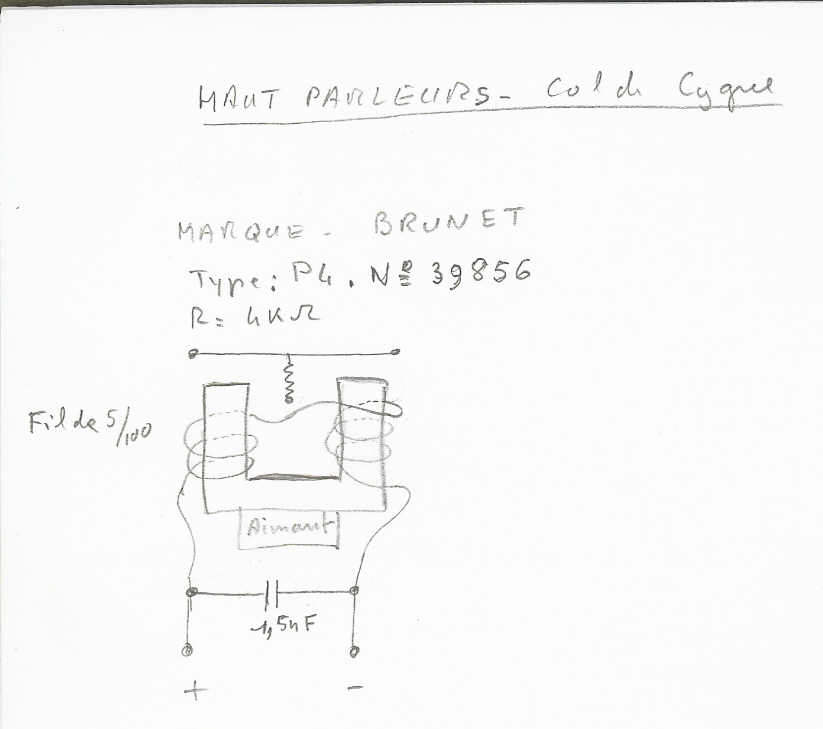 HAUT PARLEURS - Col de Cygne
MARQUE - BRUNET
Type: P4. Nº 39856
R= 4KΩ
Fil de 5/100
Aimant
1,5nF
+ -